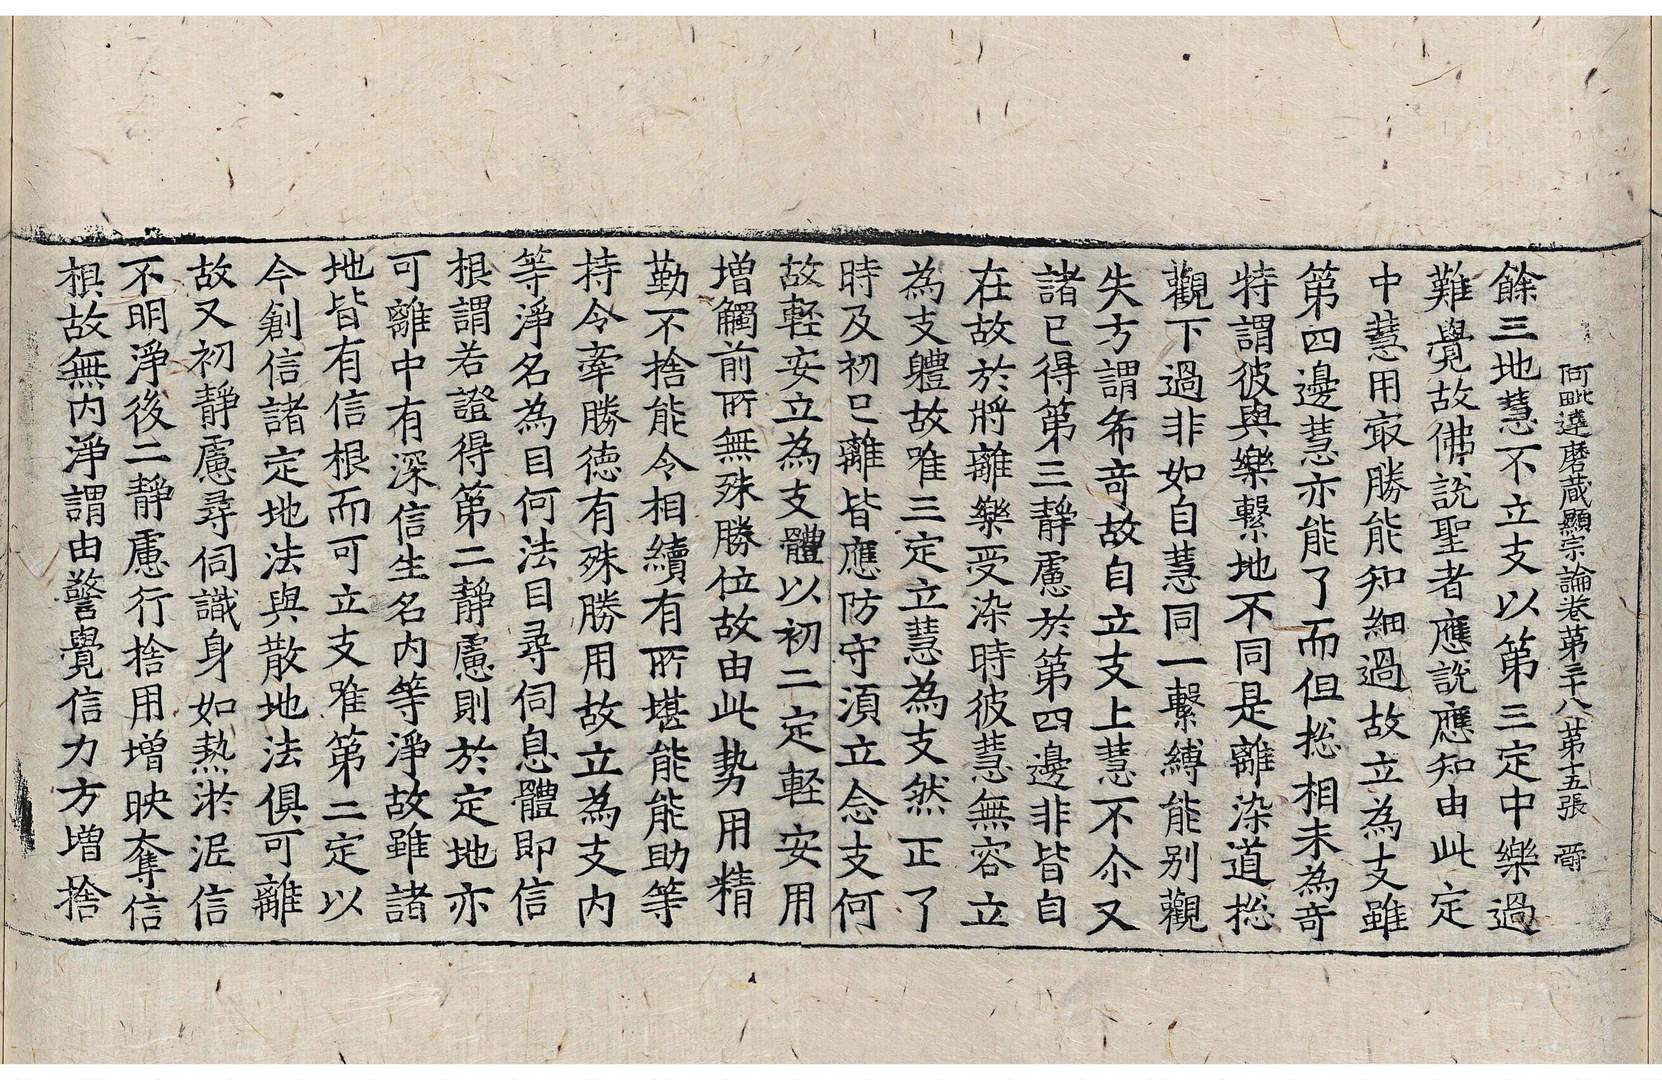 阿毗達磨蔵顯宗論卷第三十八　第十五張　爵
餘三地慧不立支以第三定中樂過
難覺故佛說聖者應說應知由此定
中慧用㝡勝能知細過故立為支雖
第四邊慧亦能了而但捴相未為竒
特謂彼與樂繫地不同是離染道捴
觀下過非如自慧同一繫縛能别觀
失方謂希竒故自立支上慧不尒又
諸已得第三靜慮於第四邊非皆自
在故於將離樂受染時彼慧無容立
為支軆故唯三定立慧為支然正了
時及初已離皆應防守湏立念支何
故輕安立為支體以初二定輕安用
增觸前所無殊勝位故由此勢用精
勤不捨能令相續有所堪能能助等
持令牽勝德有殊勝用故立為支內
等淨名為目何法目尋伺息體即信
根謂若證得第二靜慮則於定地亦
可離中有深信生名內等淨故雖諸
地皆有信根而可立支唯第二定以
今創信諸定地法與散地法俱可離
故又初靜慮尋伺識身如熱淤泥信
不明淨後二靜慮行捨用增映奪信
根故無內淨謂由警覺信力方增捨